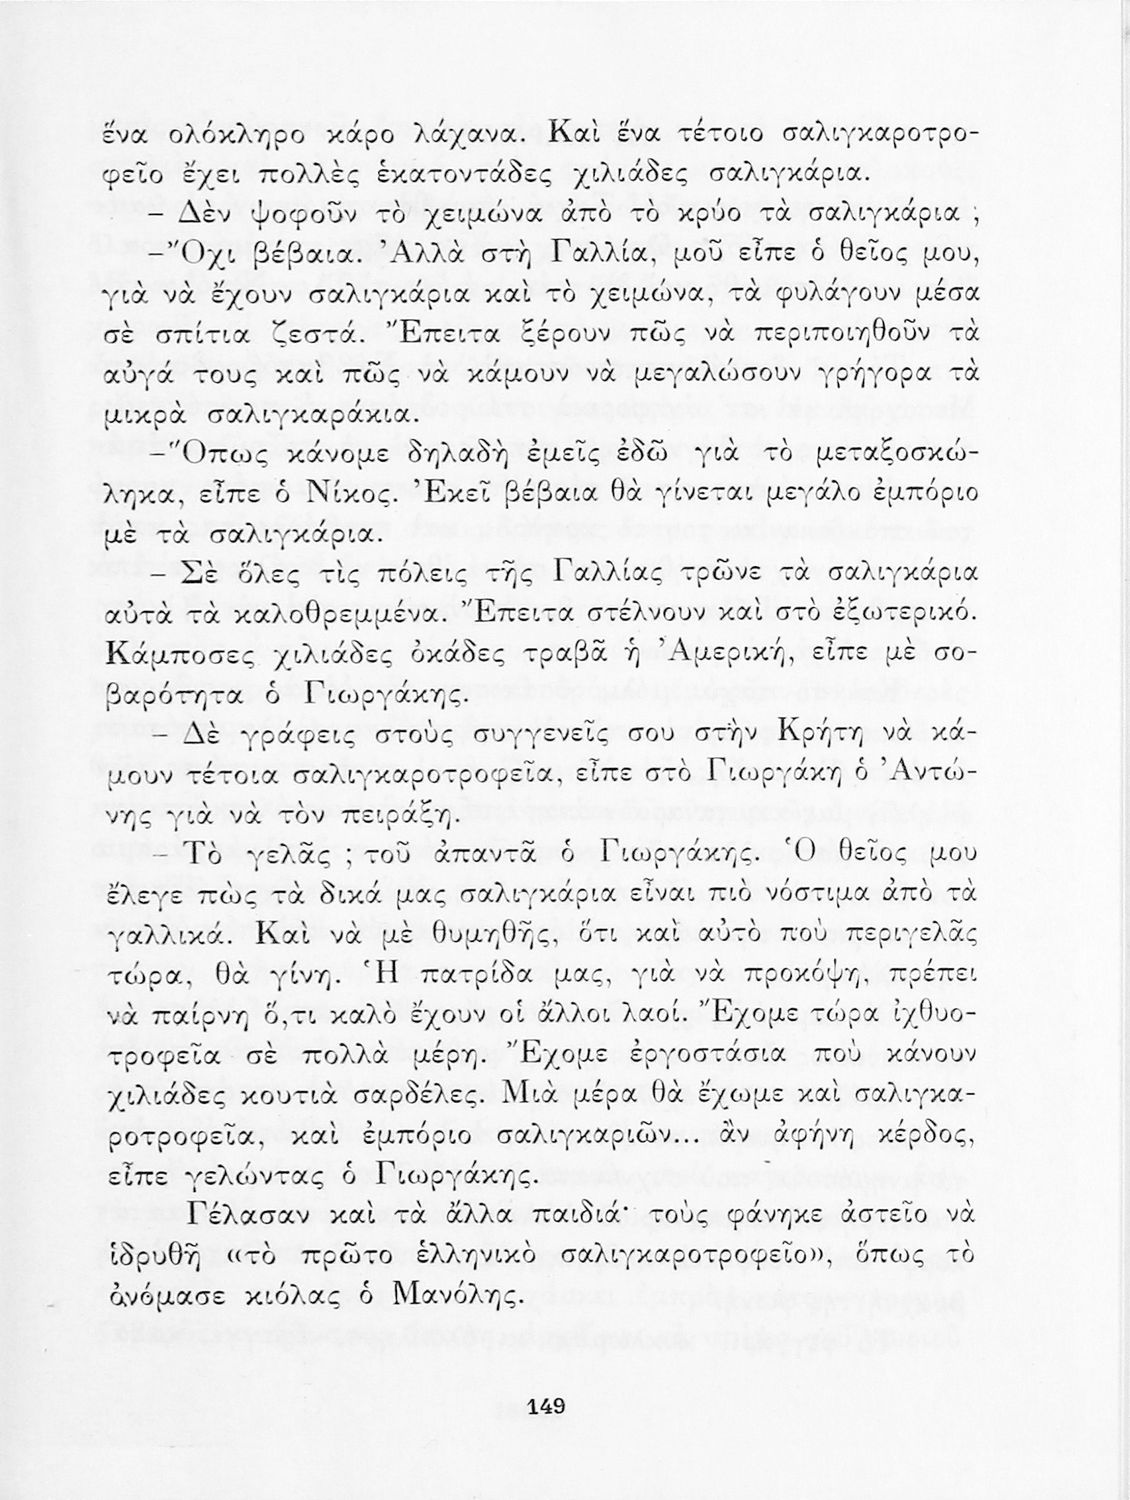 ἕνα ολόκληρο κάρο λάχανα. Καὶ ἕνα τέτοιο σαλιγκαροτρο-
φεῖο ἔχει πολλὲς ἑκατοντάδες χιλιάδες σαλιγκάρια.
– Δὲν ψοφοῦν τὸ χειμώνα ἀπὸ τὸ κρύο τὰ σαλιγκάρια ;
–Ὄχι βέβαια. Ἀλλὰ στὴ Γαλλία, μοῦ εἶπε ὁ θεῖος μου,
γιὰ νὰ ἔχουν σαλιγκάρια καὶ τὸ χειμώνα, τὰ φυλάγουν μέσα
σὲ σπίτια ζεστά. Ἔπειτα ξέρουν πῶς νὰ περιποιηθοῦν τὰ
αὐγά τους καὶ πῶς νὰ κάμουν νὰ μεγαλώσουν γρήγορα τὰ
μικρὰ σαλιγκαράκια.
–Ὅπως κάνομε δηλαδὴ ἐμεῖς ἐδῶ γιὰ τὸ μεταξοσκώ-
ληκα, εἶπε ὁ Νίκος. Ἐκεῖ βέβαια θὰ γίνεται μεγάλο ἐμπόριο
μὲ τὰ σαλιγκάρια.
– Σὲ ὅλες τὶς πόλεις τῆς Γαλλίας τρῶνε τὰ σαλιγκάρια
αὐτὰ τὰ καλοθρεμμένα. Ἔπειτα στέλνουν καὶ στὸ ἐξωτερικό.
Κάμποσες χιλιάδες ὀκάδες τραβᾶ ἡ Ἀμερική, εἶπε μὲ σο-
βαρότητα ὁ Γιωργάκης.
– Δὲ γράφεις στοὺς συγγενεῖς σου στὴν Κρήτη νὰ κά-
μουν τέτοια σαλιγκαροτροφεῖα, εἶπε στὸ Γιωργάκη ὁ Ἀντώ-
νης γιὰ νὰ τὸν πειράξη.
– Τὸ γελᾶς ; τοῦ ἀπαντᾶ ὁ Γιωργάκης. Ὁ θεῖος μου
ἔλεγε πὼς τὰ δικά μας σαλιγκάρια εἶναι πιὸ νόστιμα ἀπὸ τὰ
γαλλικά. Καὶ νὰ μὲ θυμηθῆς, ὅτι καὶ αὐτὸ ποὺ περιγελᾶς
τώρα, θὰ γίνη. Ἡ πατρίδα μας, γιὰ νὰ προκόψη, πρέπει
νὰ παίρνη ὅ,τι καλὸ ἔχουν οἱ ἄλλοι λαοί. Ἔχομε τώρα ἰχθυο-
τροφεῖα σὲ πολλὰ μέρη. Ἔχομε ἐργοστάσια ποὺ κάνουν
χιλιάδες κουτιὰ σαρδέλες. Μιὰ μέρα θὰ ἔχωμε καὶ σαλιγκα-
ροτροφεῖα, καὶ ἐμπόριο σαλιγκαριῶν... ἂν ἀφήνη κέρδος,
εἶπε γελώντας ὁ Γιωργάκης.
Γέλασαν καὶ τὰ ἄλλα παιδιά· τοὺς φάνηκε ἀστεῖο νὰ
ἱδρυθῆ «τὸ πρῶτο ἑλληνικὸ σαλιγκαροτροφεῖο», ὅπως τὸ
ὀνόμασε κιόλας ὁ Μανόλης.
149